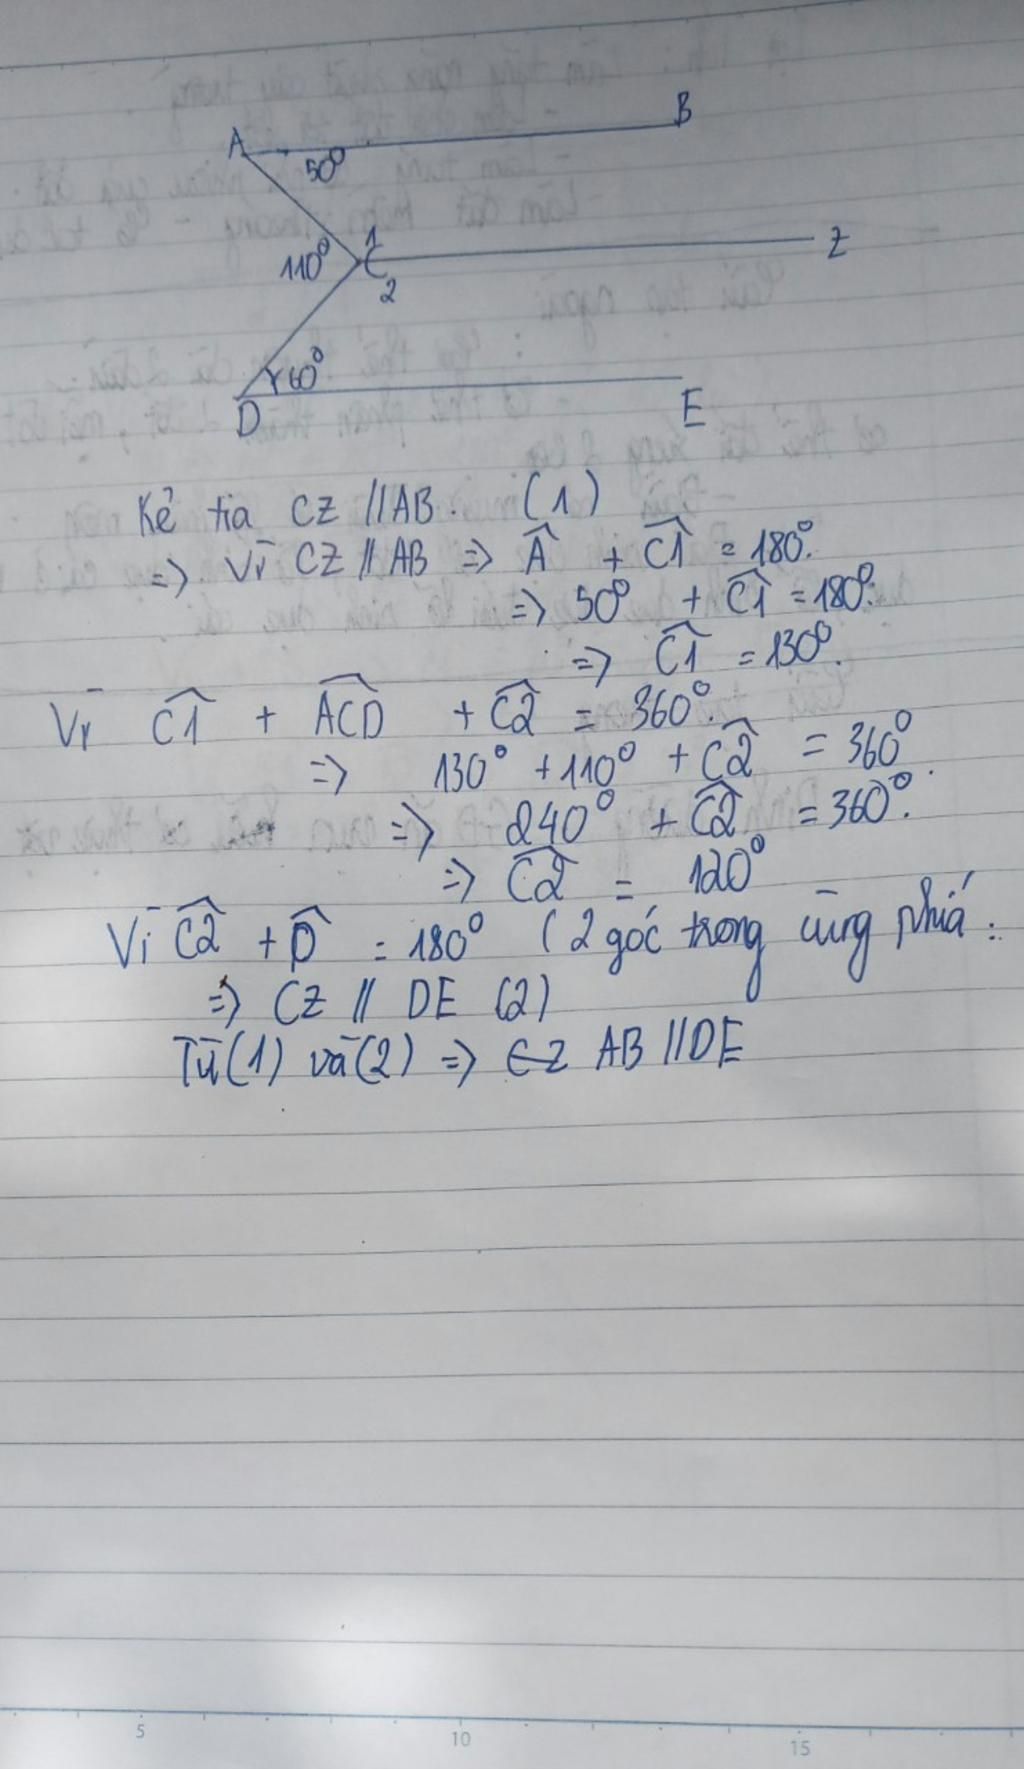 A
B
50°
110°
1
C
2
Z
60°
D
E
Kẻ tia CZ // AB. (1)
=> Vì CZ // AB => Â + Ĉ1 = 180°.
=> 50° + Ĉ1 = 180°.
=> Ĉ1 = 130°.
Vì Ĉ1 + \widehat{ACD} + Ĉ2 = 360°.
=> 130° + 110° + Ĉ2 = 360°.
=> 240° + Ĉ2 = 360°.
=> Ĉ2 = 120°
Vì Ĉ2 + D̂ = 180° (2 góc trong cùng phía.
=> CZ // DE (2)
Từ (1) và (2) => CZ AB // DE
5 10 15